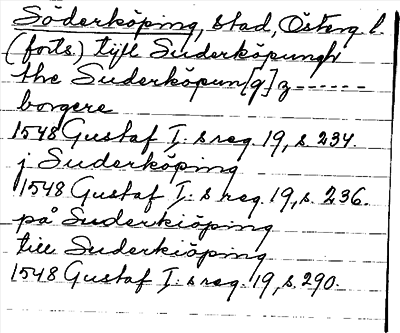 Söderköping, stad, Österg. l.
(forts.) tijll Suderköpungh
the Suderköpun[g]z------
borgere
1548 Gustaf I:s reg. 19, s. 234.
j Suderköping
1548 Gustaf I:s reg. 19, s. 236.
på Suderkiöping
till Suderkiöping
1548 Gustaf I:s reg. 19, s. 290.